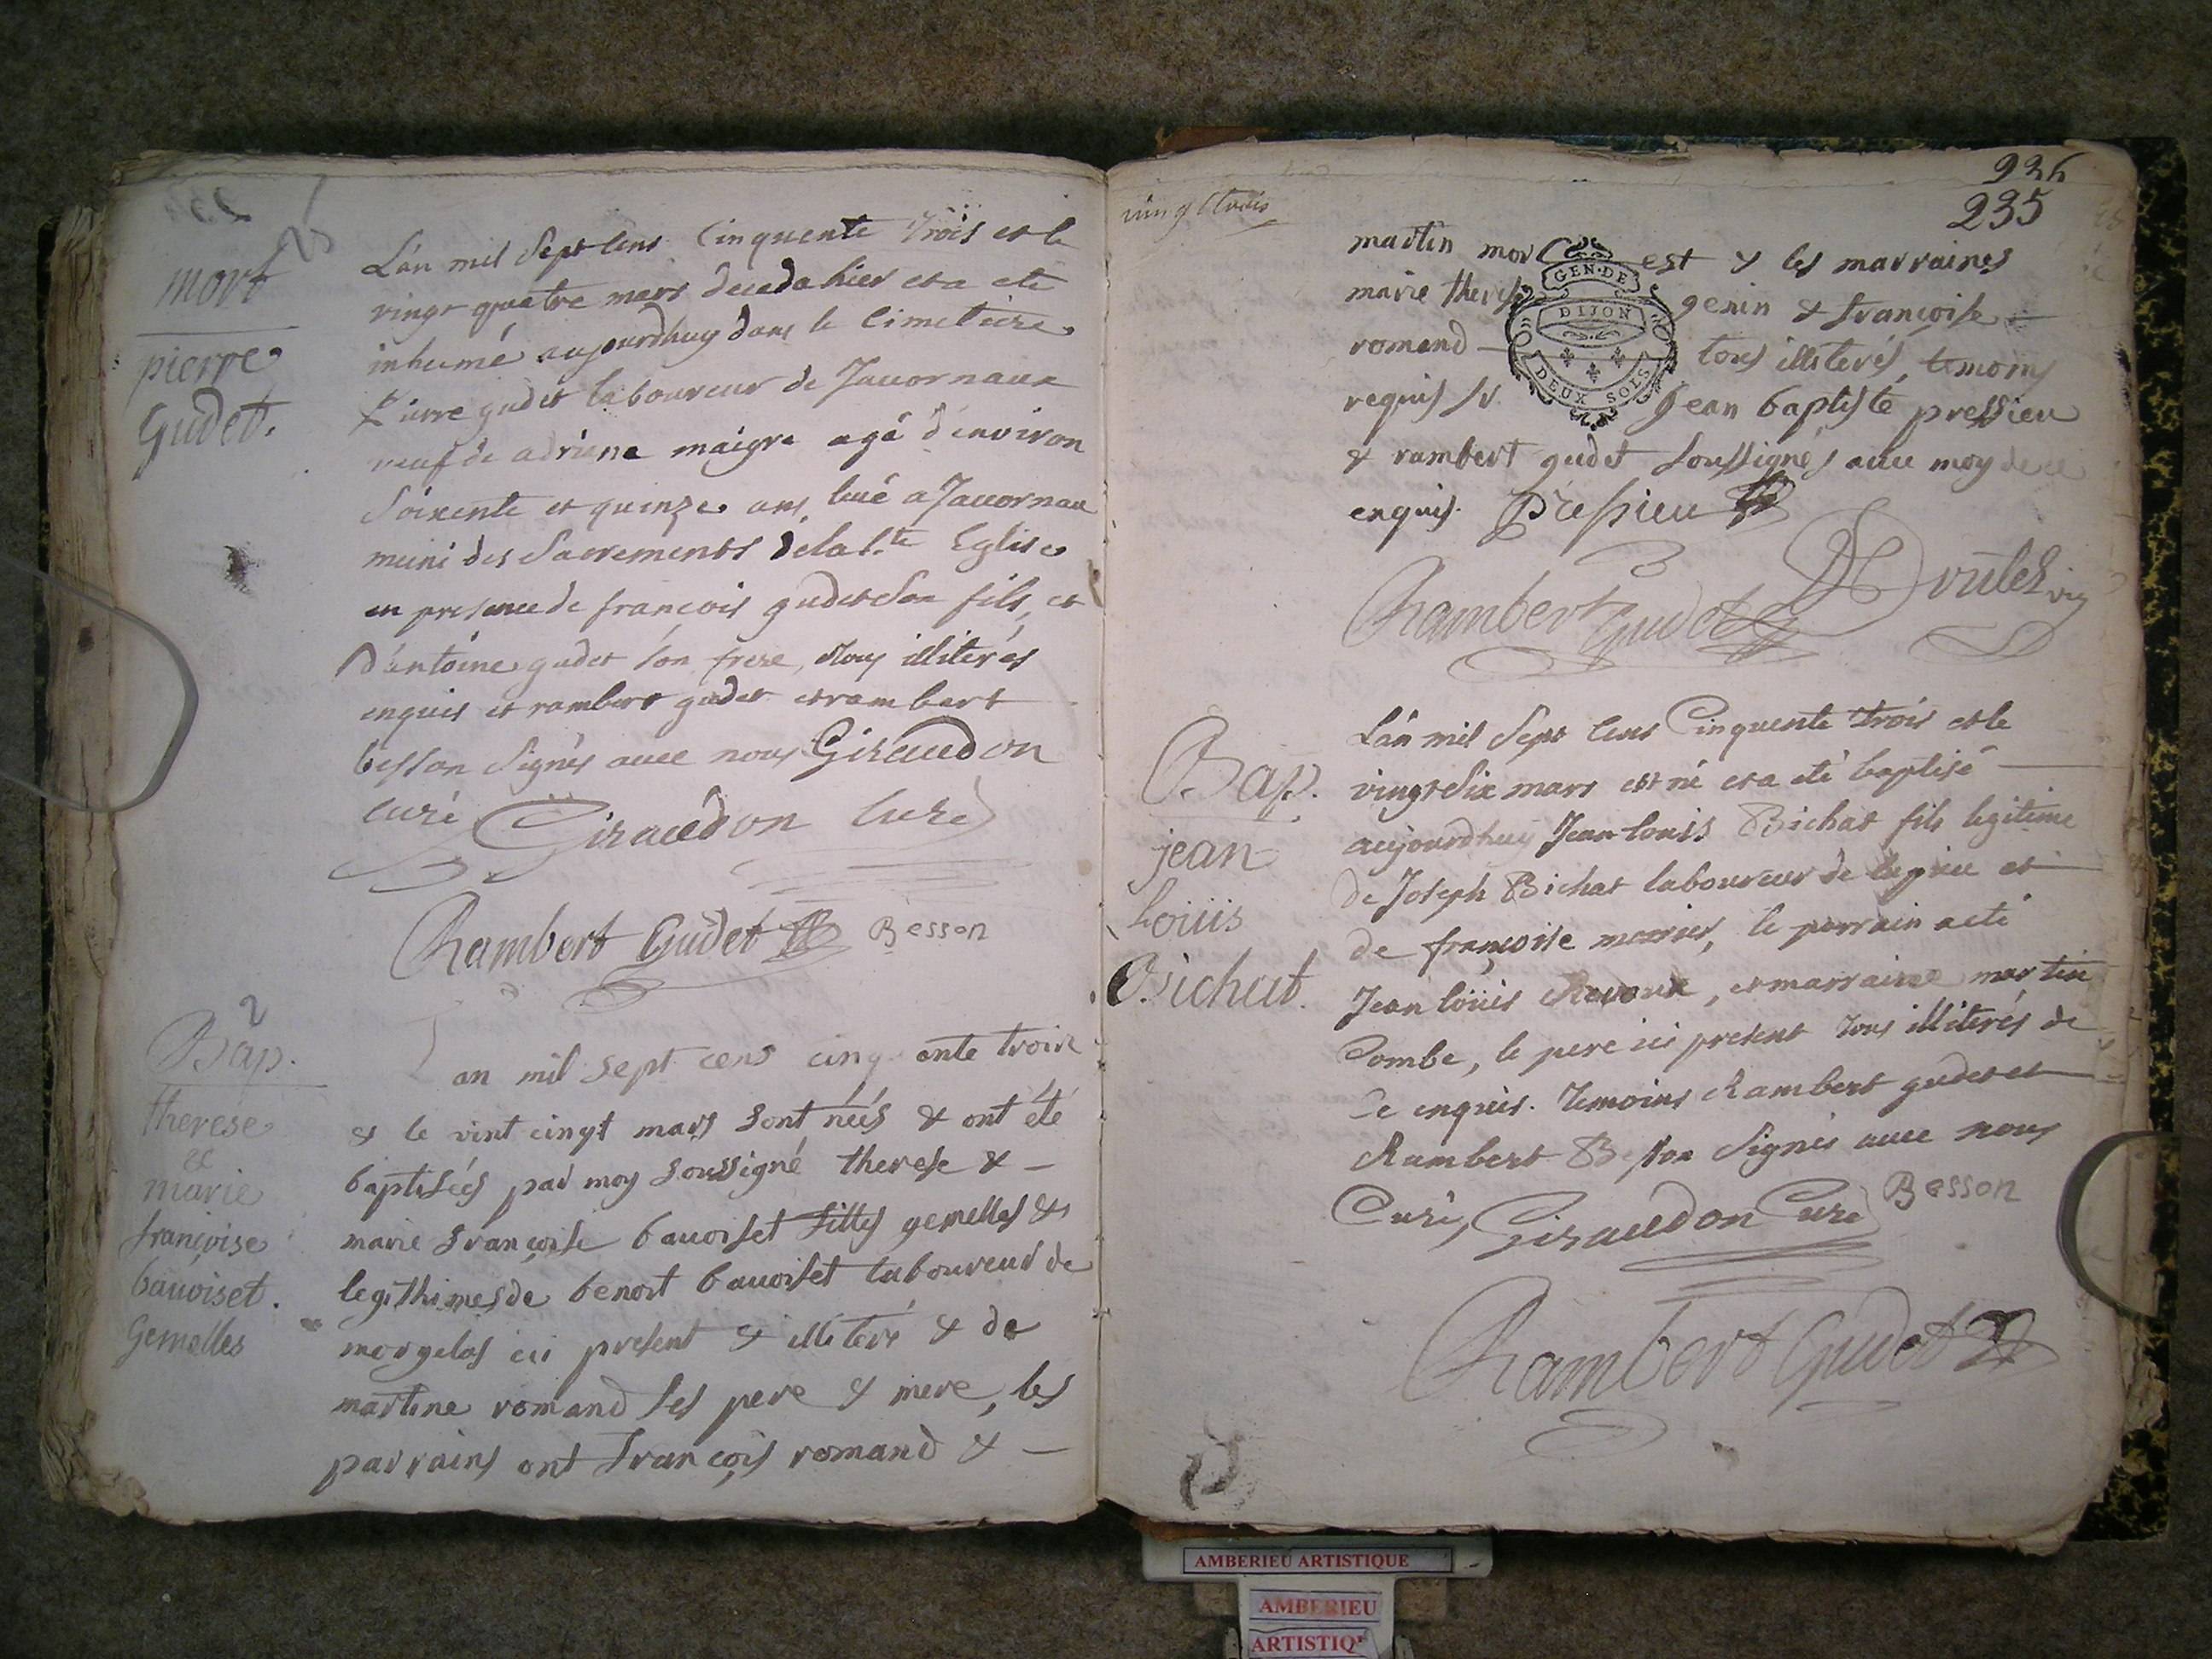 mort
pierre
Gudet.
L'an mil Sept Cens Cinquente Trois et le
vingt quatre mars deceda hier et a eté
inhumé aujourdhuy dans le Cimetiere
Pierre gudet laboureur de Jauornaux
veuf de adriene maigre agé d'environ
Soixente et quinze ans, Tué a Jauornau
muni des Sacrements de la S.te Eglise
en presence de françois gudet Son fils, et
D'antoine gudet Son frere, tous illiterés
enquis et rambert gudet et rambert
besson Signés auec nous Giraudon
Curé Giraudon Curé
Rambert Gudet Besson
2
Bap.
therese
et
marie
françoise
bauoiset.
Gemelles
an mil sept cens cinquante trois
& le vint cinqt mars sont néés & ont été
baptiséés par moy soussigné therese & —
marie françoise bauoiset filles gemelles &
legithimes de benoit bauoiset laboureur de
morgelas ici present & illiteré & de
martine romand ses pere & mere, les
parrains ont françois romand & —
936
235
vingt trois
martin morel est & les marraines
marie therese genin & françoise —
romand — tous illiterés, temoins
requis Sr. Jean baptiste pressieu
& rambert gudet soussignés auec moy de ce
enquis. Pressieu
Rambert Gudet
GEN. DE
DIJON
DEUX SOLS
Bap.
jean
Loüis
Bichat.
L'an mil Sept Cens Cinquente trois et le
vingt Six mars est né et a eté baptisé —
aujourdhuy Jean louis Bichat fils legitime
de Joseph Bichat laboureur de et
de françoise mornier, le parrain a eté
Jean loüis Revoux, et marraine martine
Combe, le pere ici present tous illiterés de
Ce enquis. Temoins Rambert gudet et
Rambert Besson Signés auec nous
Curé, Giraudon Curé Besson
Rambert Gudet
AMBERIEU ARTISTIQUE
AMBERIEU
ARTISTIQ